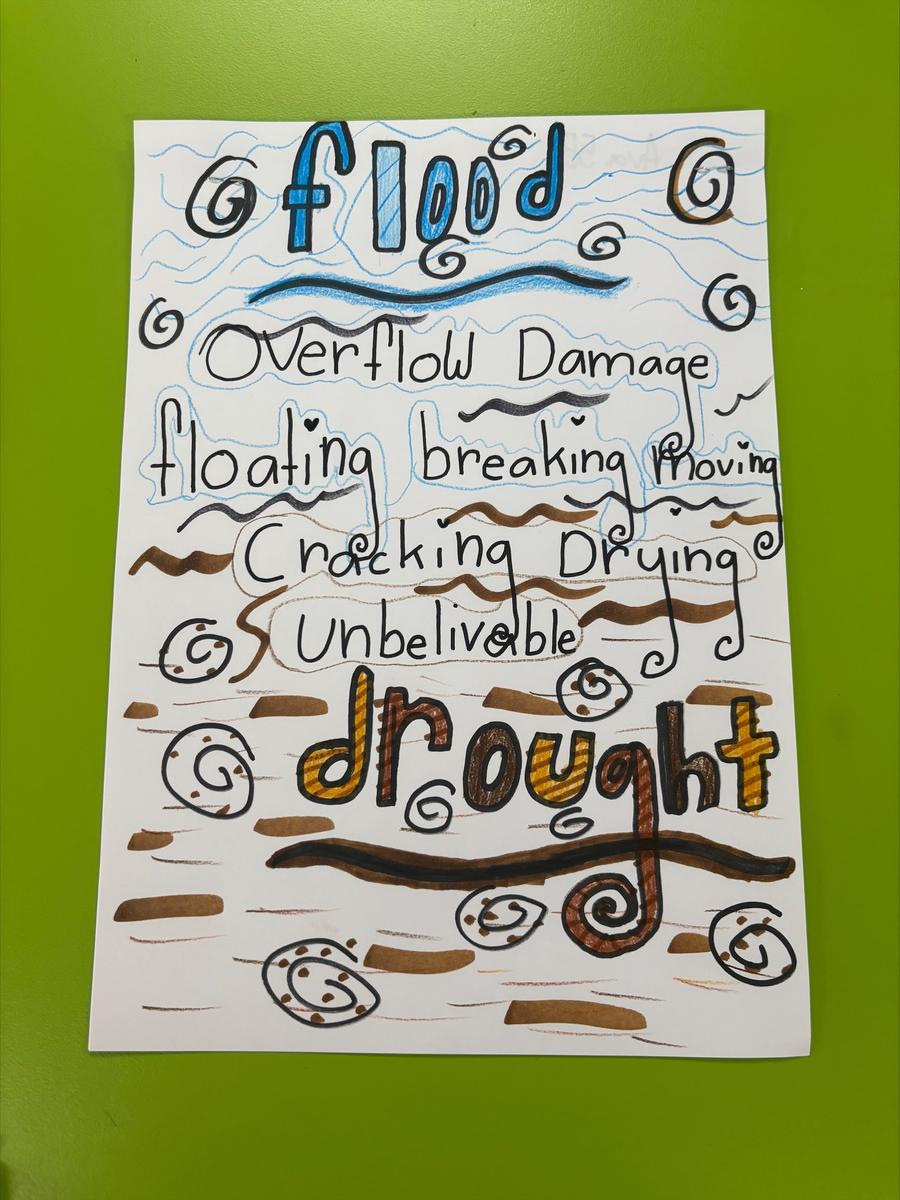 flood
Overflow Damage
floating breaking moving
Cracking Drying
Unbelivable
drought